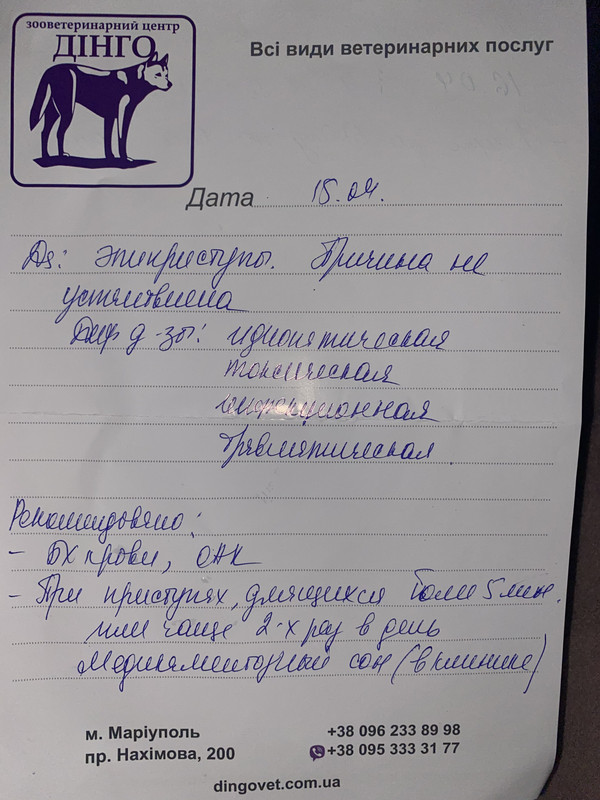 зооветеринарний центр
ДІНГО
Всі види ветеринарних послуг
Дата 15.04.
Дз: эпиприступы. Причина не
установлена
Диф д-зы: идиопатическая
токсическая
инфекционная
травматическая
Рекомендовано:
- БХ крови, ОАК
- При приступах, длящихся более 5 мин.
или чаще 2-х раз в день
медикаментозный сон (в клинике)
м. Маріуполь
пр. Нахімова, 200
+38 096 233 89 98
+38 095 333 31 77
dingovet.com.ua